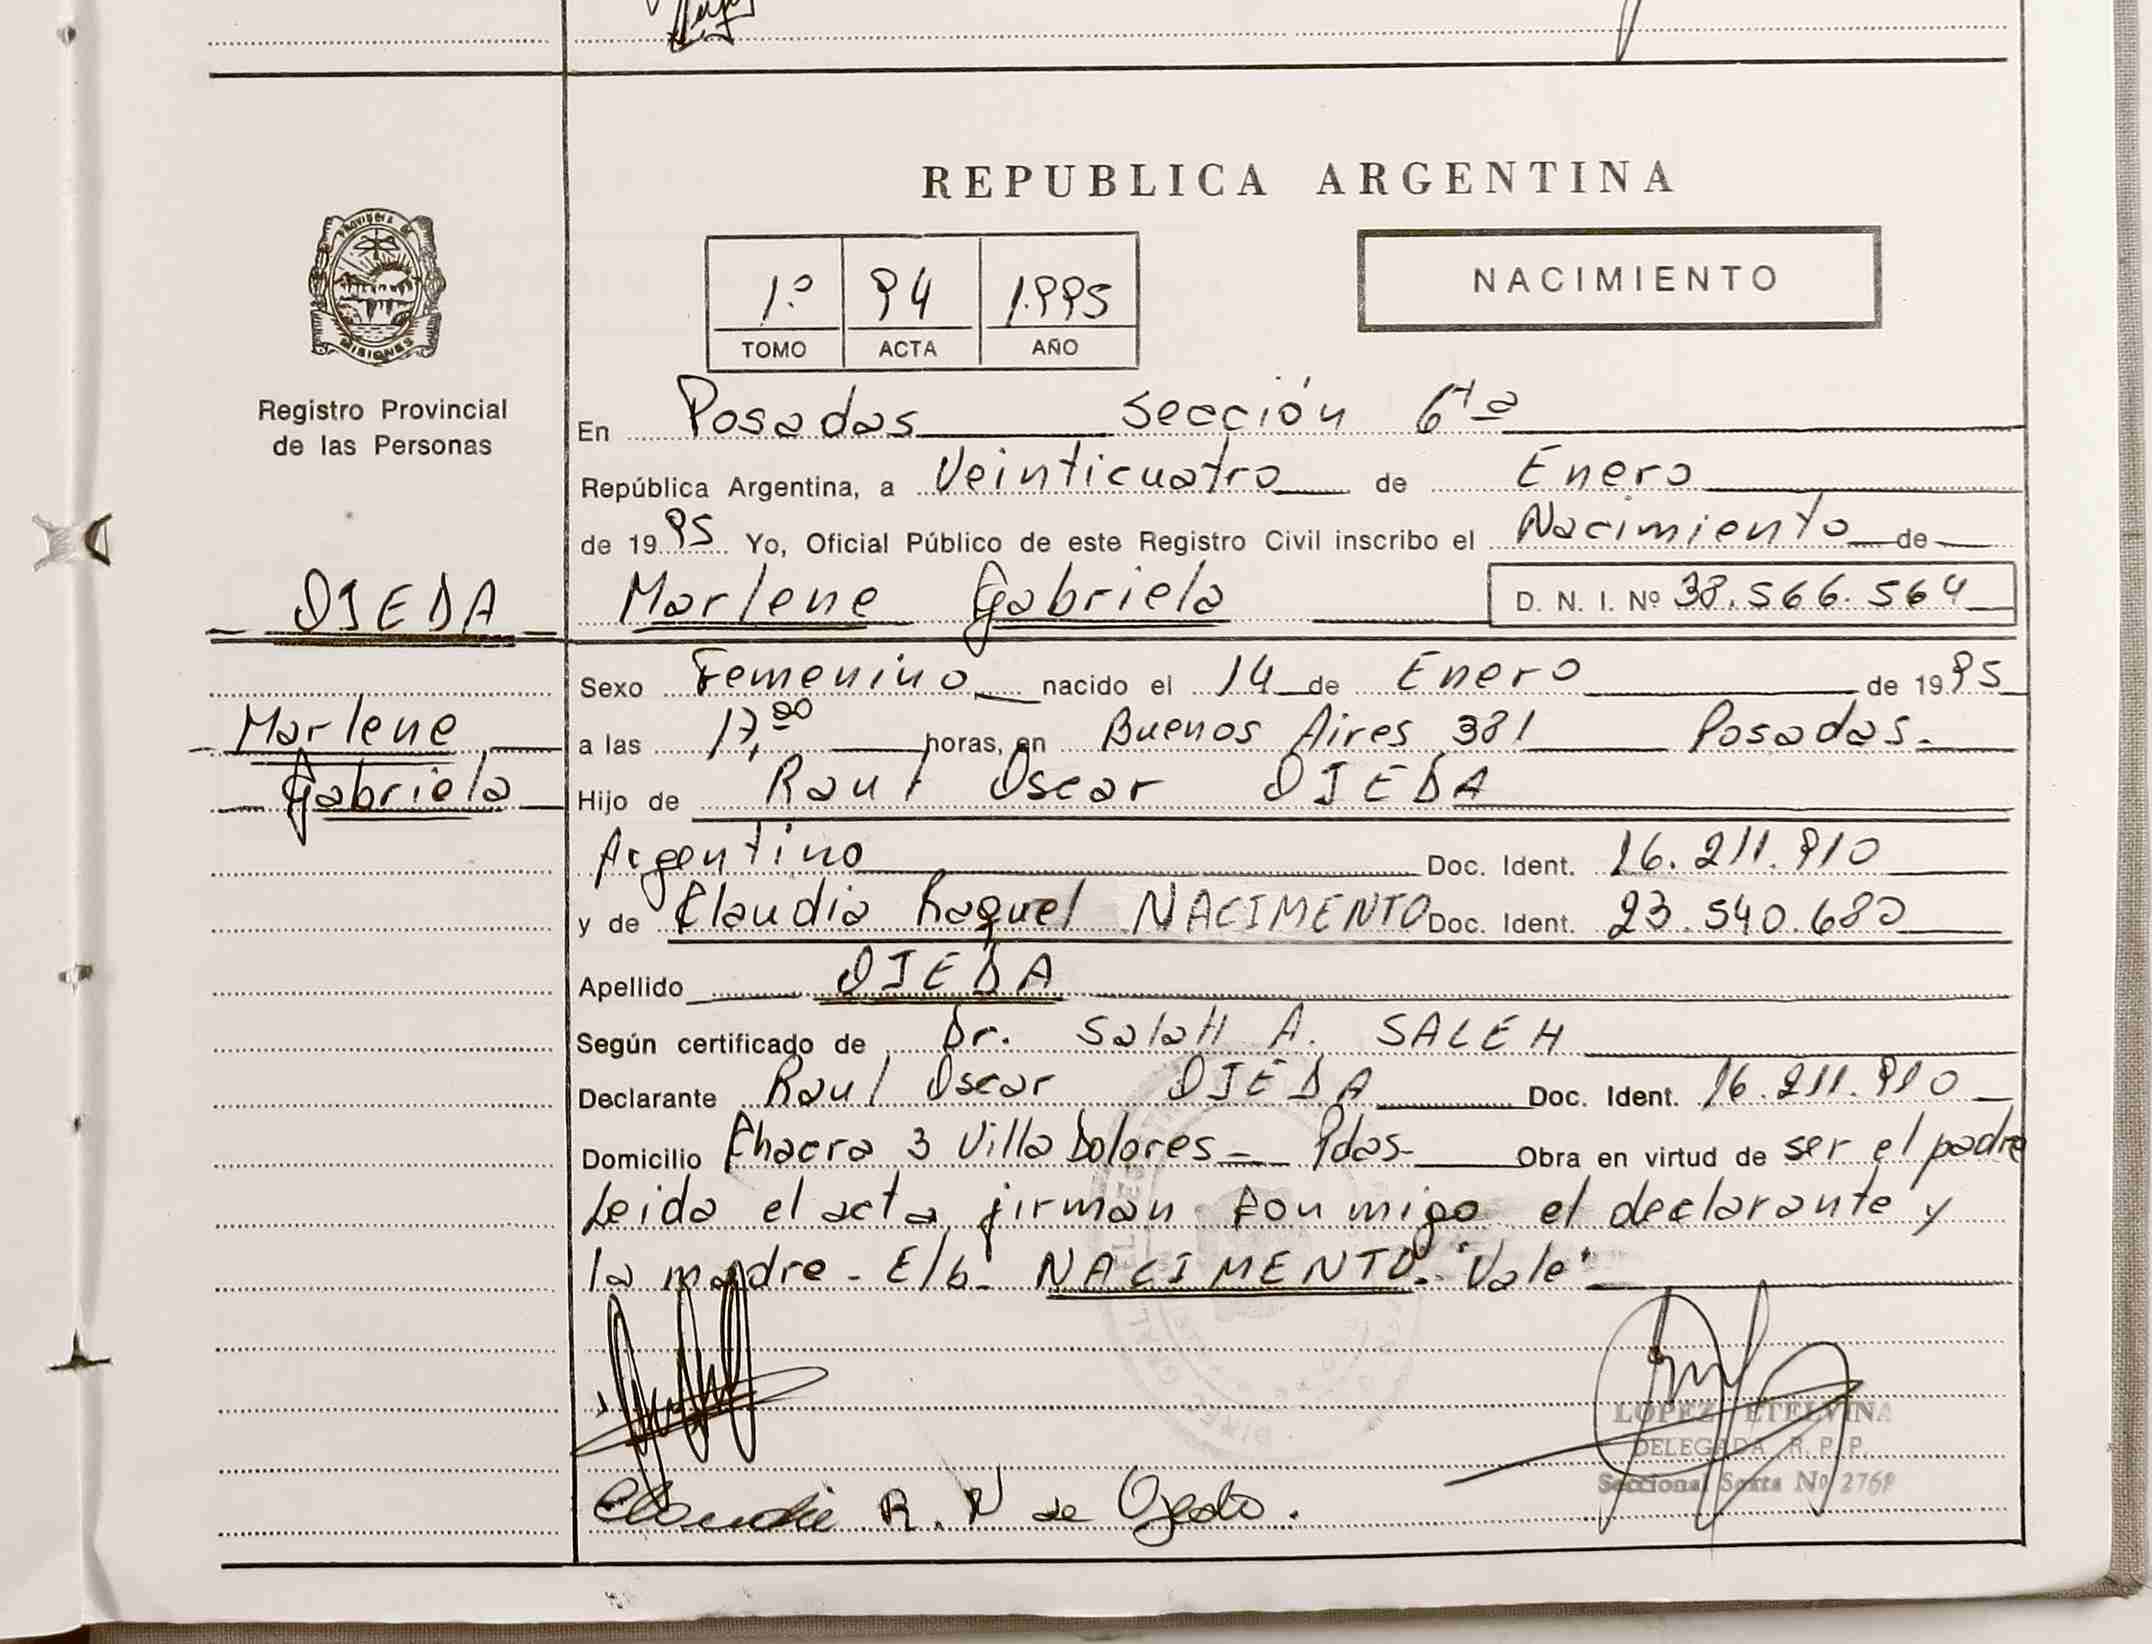 REPUBLICA ARGENTINA
PROVINCIA DE
MISIONES
Registro Provincial
de las Personas
NACIMIENTO
1º 94 1.995
TOMO ACTA AÑO
En Posadas sección 6ta
República Argentina, a Veinticuatro de Enero
de 1995 Yo, Oficial Público de este Registro Civil inscribo el Nacimiento de
OJEDA Marlene Gabriela D. N. I. Nº 38.566.564
Sexo Femenino nacido el 14 de Enero de 1995
Marlene a las 17,00 horas, en Buenos Aires 381 Posadas.
Gabriela Hijo de Raul Oscar OJEDA
Argentino Doc. Ident. 16.211.910
y de Claudia Raquel NACIMENTO Doc. Ident. 23.540.680
Apellido OJEDA
Según certificado de Dr. SalaH A. SALEH
Declarante Raul Oscar OJEDA Doc. Ident. 16.211.910
Domicilio Chacra 3 Villa Dolores - Pdas- Obra en virtud de ser el padre
Leida el acta, firman conmigo el declarante y
la madre - E/b- NACIMENTO. "Vale"
LOPEZ ETELVINA
DELEGADA R. P. P.
Seccional Sexta Nº 2769
Claudia R. N de Ojeda.